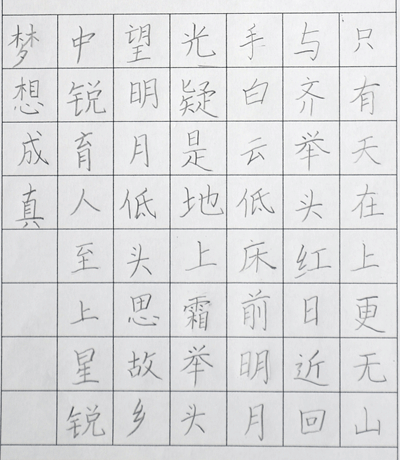 只有天在上更无山
与齐举头红日近回
手白云低床前明月
光疑是地上霜举头
望明月低头思故乡
中锐育人至上星锐
梦想成真